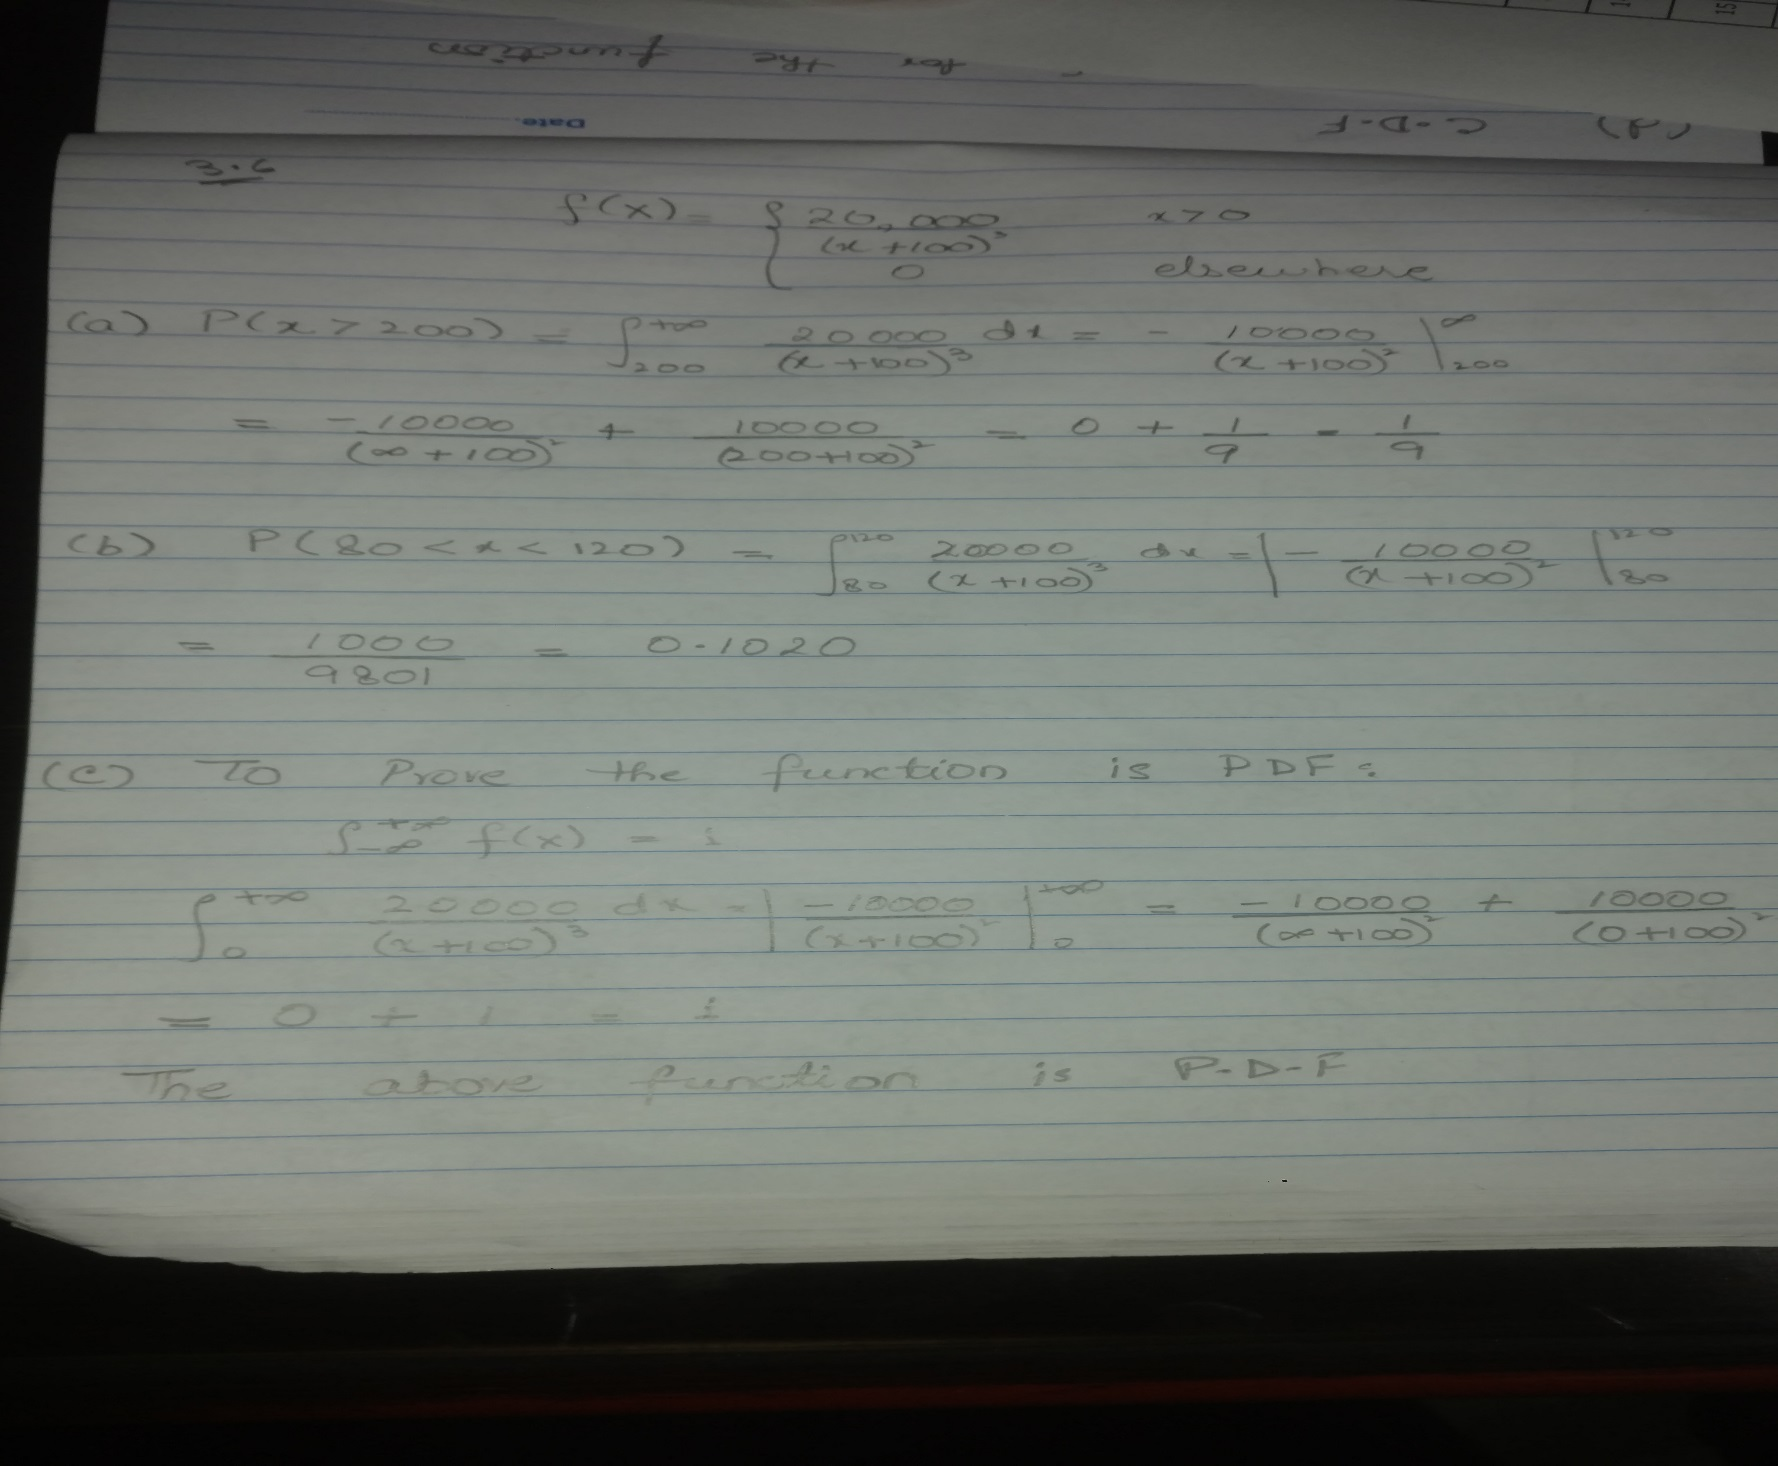 (d) C.D.F
for the function
Date.
3.6
f(x) = { 20,000 / (x+100)³ x > 0
0 elsewhere
(a) P(x > 200) = ∫₂₀₀^{+∞} 20000/(x+100)³ dx = - 10000/(x+100)² |₂₀₀^∞
= -10000/(∞+100)² + 10000/(200+100)² = 0 + 1/9 = 1/9
(b) P(80 < x < 120) = ∫₈₀^{120} 20000/(x+100)³ dx = | - 10000/(x+100)² |₈₀^{120}
= 1000/9801 = 0.1020
(c) To Prove the function is PDF:
∫_{-∞}^{+∞} f(x) = 1
∫₀^{+∞} 20000/(x+100)³ dx = | -10000/(x+100)² |₀^{+∞} = -10000/(∞+100)² + 10000/(0+100)²
= 0 + 1 = 1
The above function is P.D.F